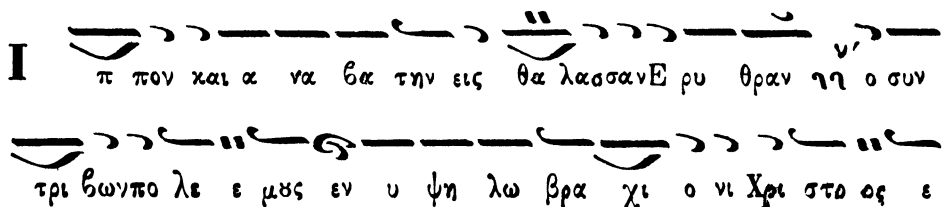 Ι π πον και α να βα την εις θα λασσαν Ε ρυ θραν ο συν
τρι βων πο λε ε μους εν υ ψη λω βρα χι ο νι Χρι στο ος ε